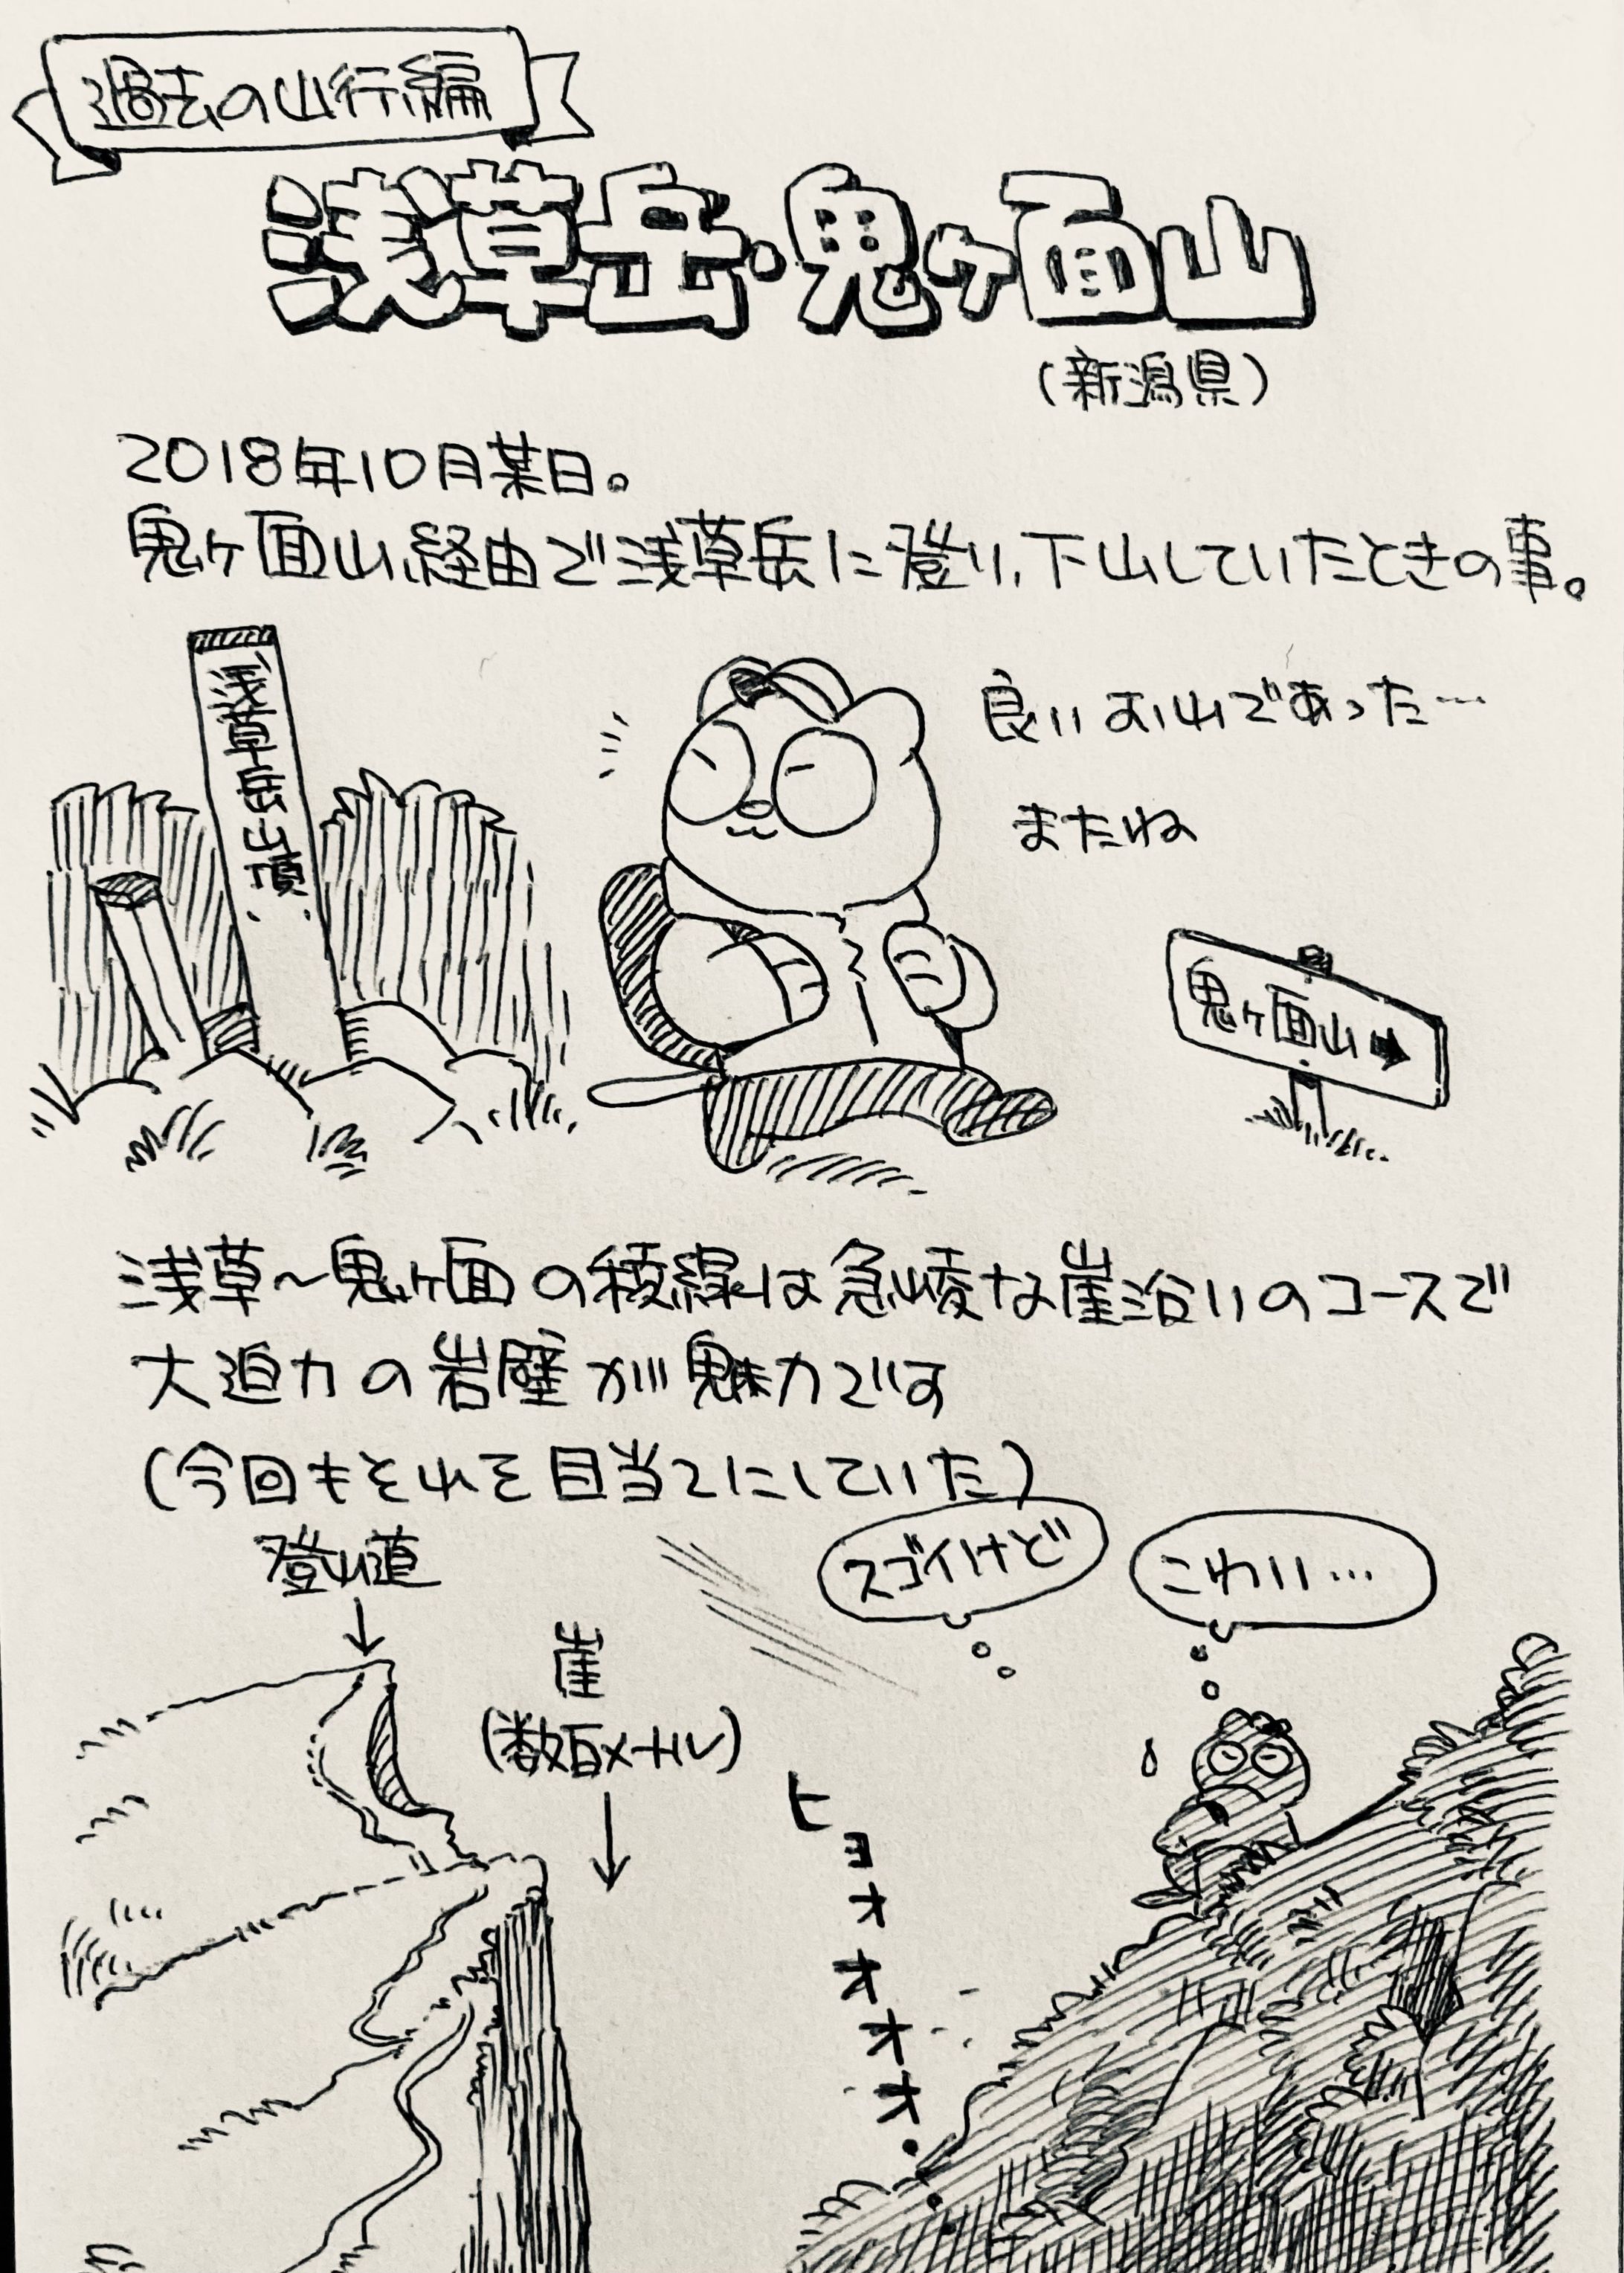 過去の山行編
浅草岳・鬼ヶ面山
(新潟県)
2018年10月某日。
鬼ヶ面山経由で浅草岳に登り、下山していたときの事。
浅草岳山頂
良いお山であった…
またね
鬼ヶ面山➡
浅草～鬼ヶ面の稜線は急峻な崖沿いのコースで
大迫力の岩壁が魅力です
(今回もそれを目当てにしていた)
登山道
崖
(数百メートル)
スゴイけど
こわい…
ヒョオオオオ・・・